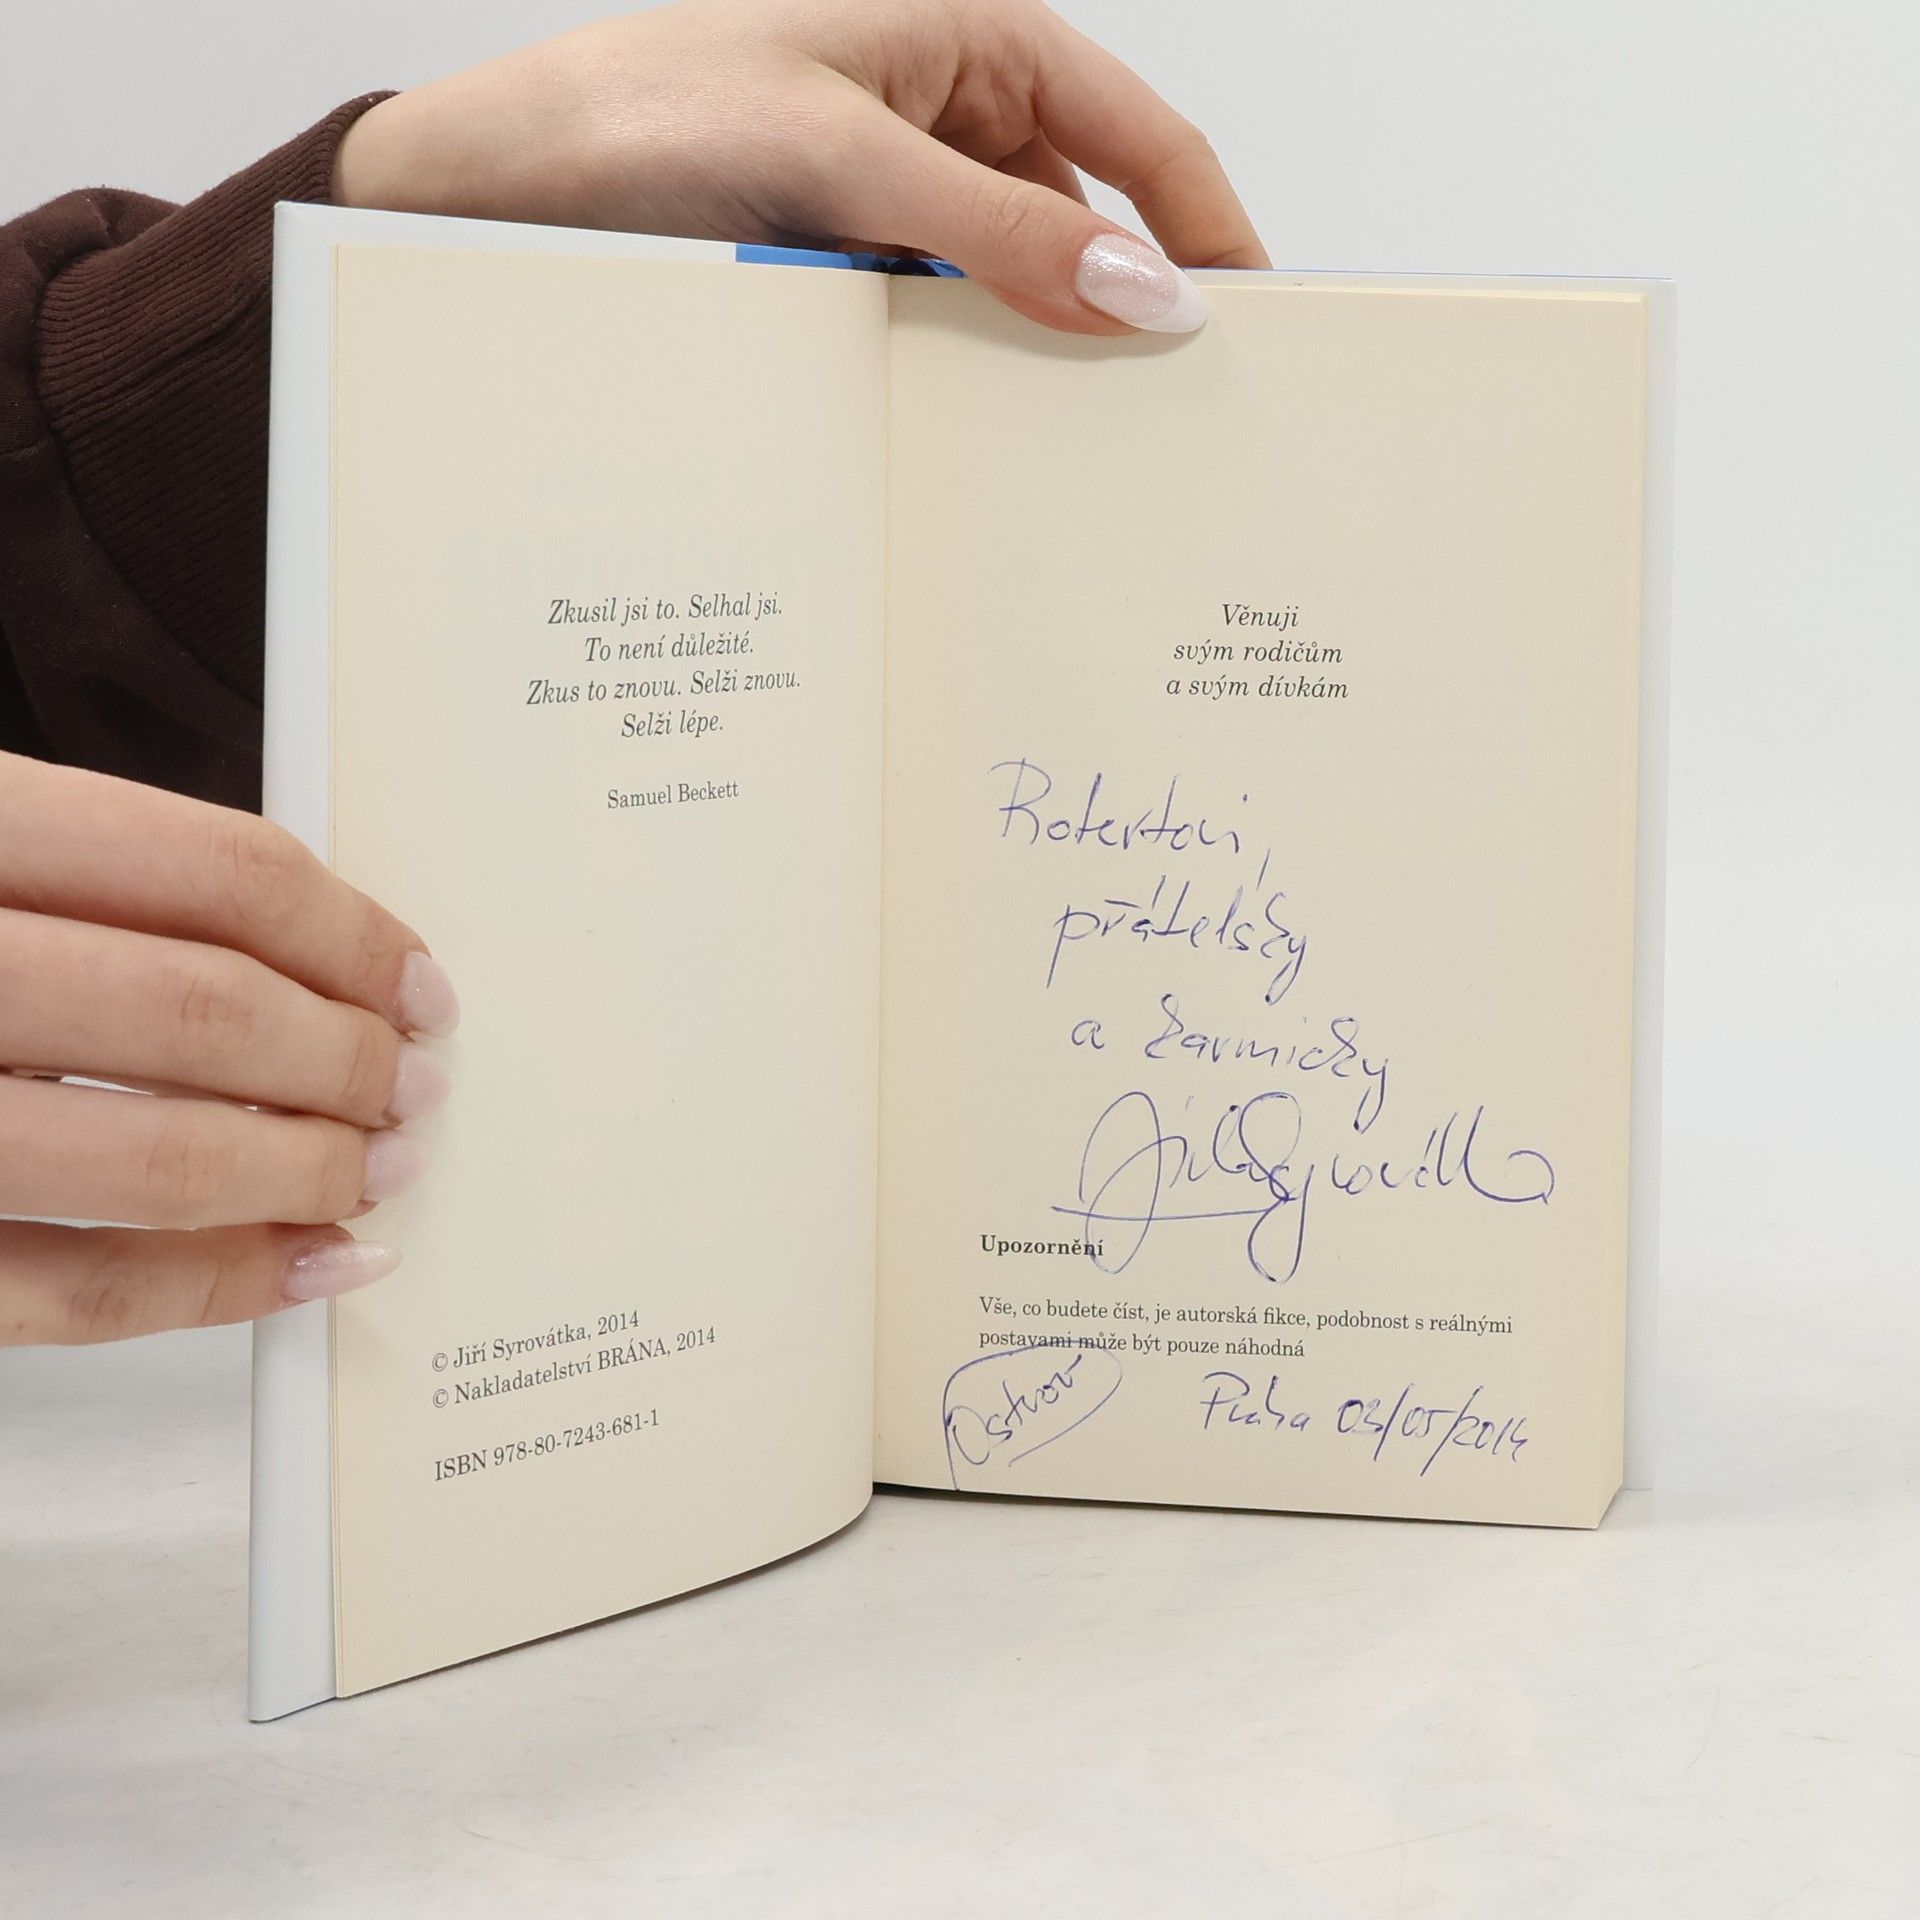 Zkusil jsi to. Selhal jsi.
To není důležité.
Zkus to znovu. Selži znovu.
Selži lépe.
Samuel Beckett
© Jiří Syrovátka, 2014
© Nakladatelství BRÁNA, 2014
ISBN 978-80-7243-681-1
Věnuji
svým rodičům
a svým dívkám
Robertovi,
přátelsky
a karmicky
Jiří Syrovátka
Upozornění
Vše, co budete číst, je autorská fikce, podobnost s reálnými
postavami může být pouze náhodná
Praha 03/05/2014